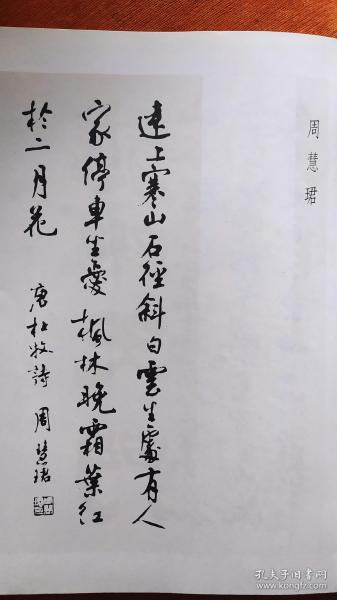 周慧珺
遠上寒山石徑斜白雲生處有人
家停車坐愛楓林晚霜葉紅
於二月花
唐杜牧詩 周慧珺
孔夫子旧书网